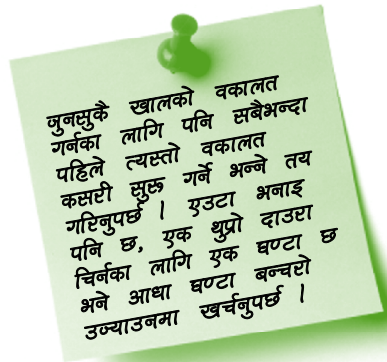 जुनसुकै खालको वकालत
गर्नका लागि पनि सबैभन्दा
पहिले त्यस्तो वकालत
कसरी सुरू गर्ने भन्ने तय
गरिनुपर्छ । एउटा भनाइ
पनि छ, एक थुप्रो दाउरा
चिर्नका लागि एक घण्टा छ
भने आधा घण्टा बन्चरो
उज्याउनमा खर्चनुपर्छ ।